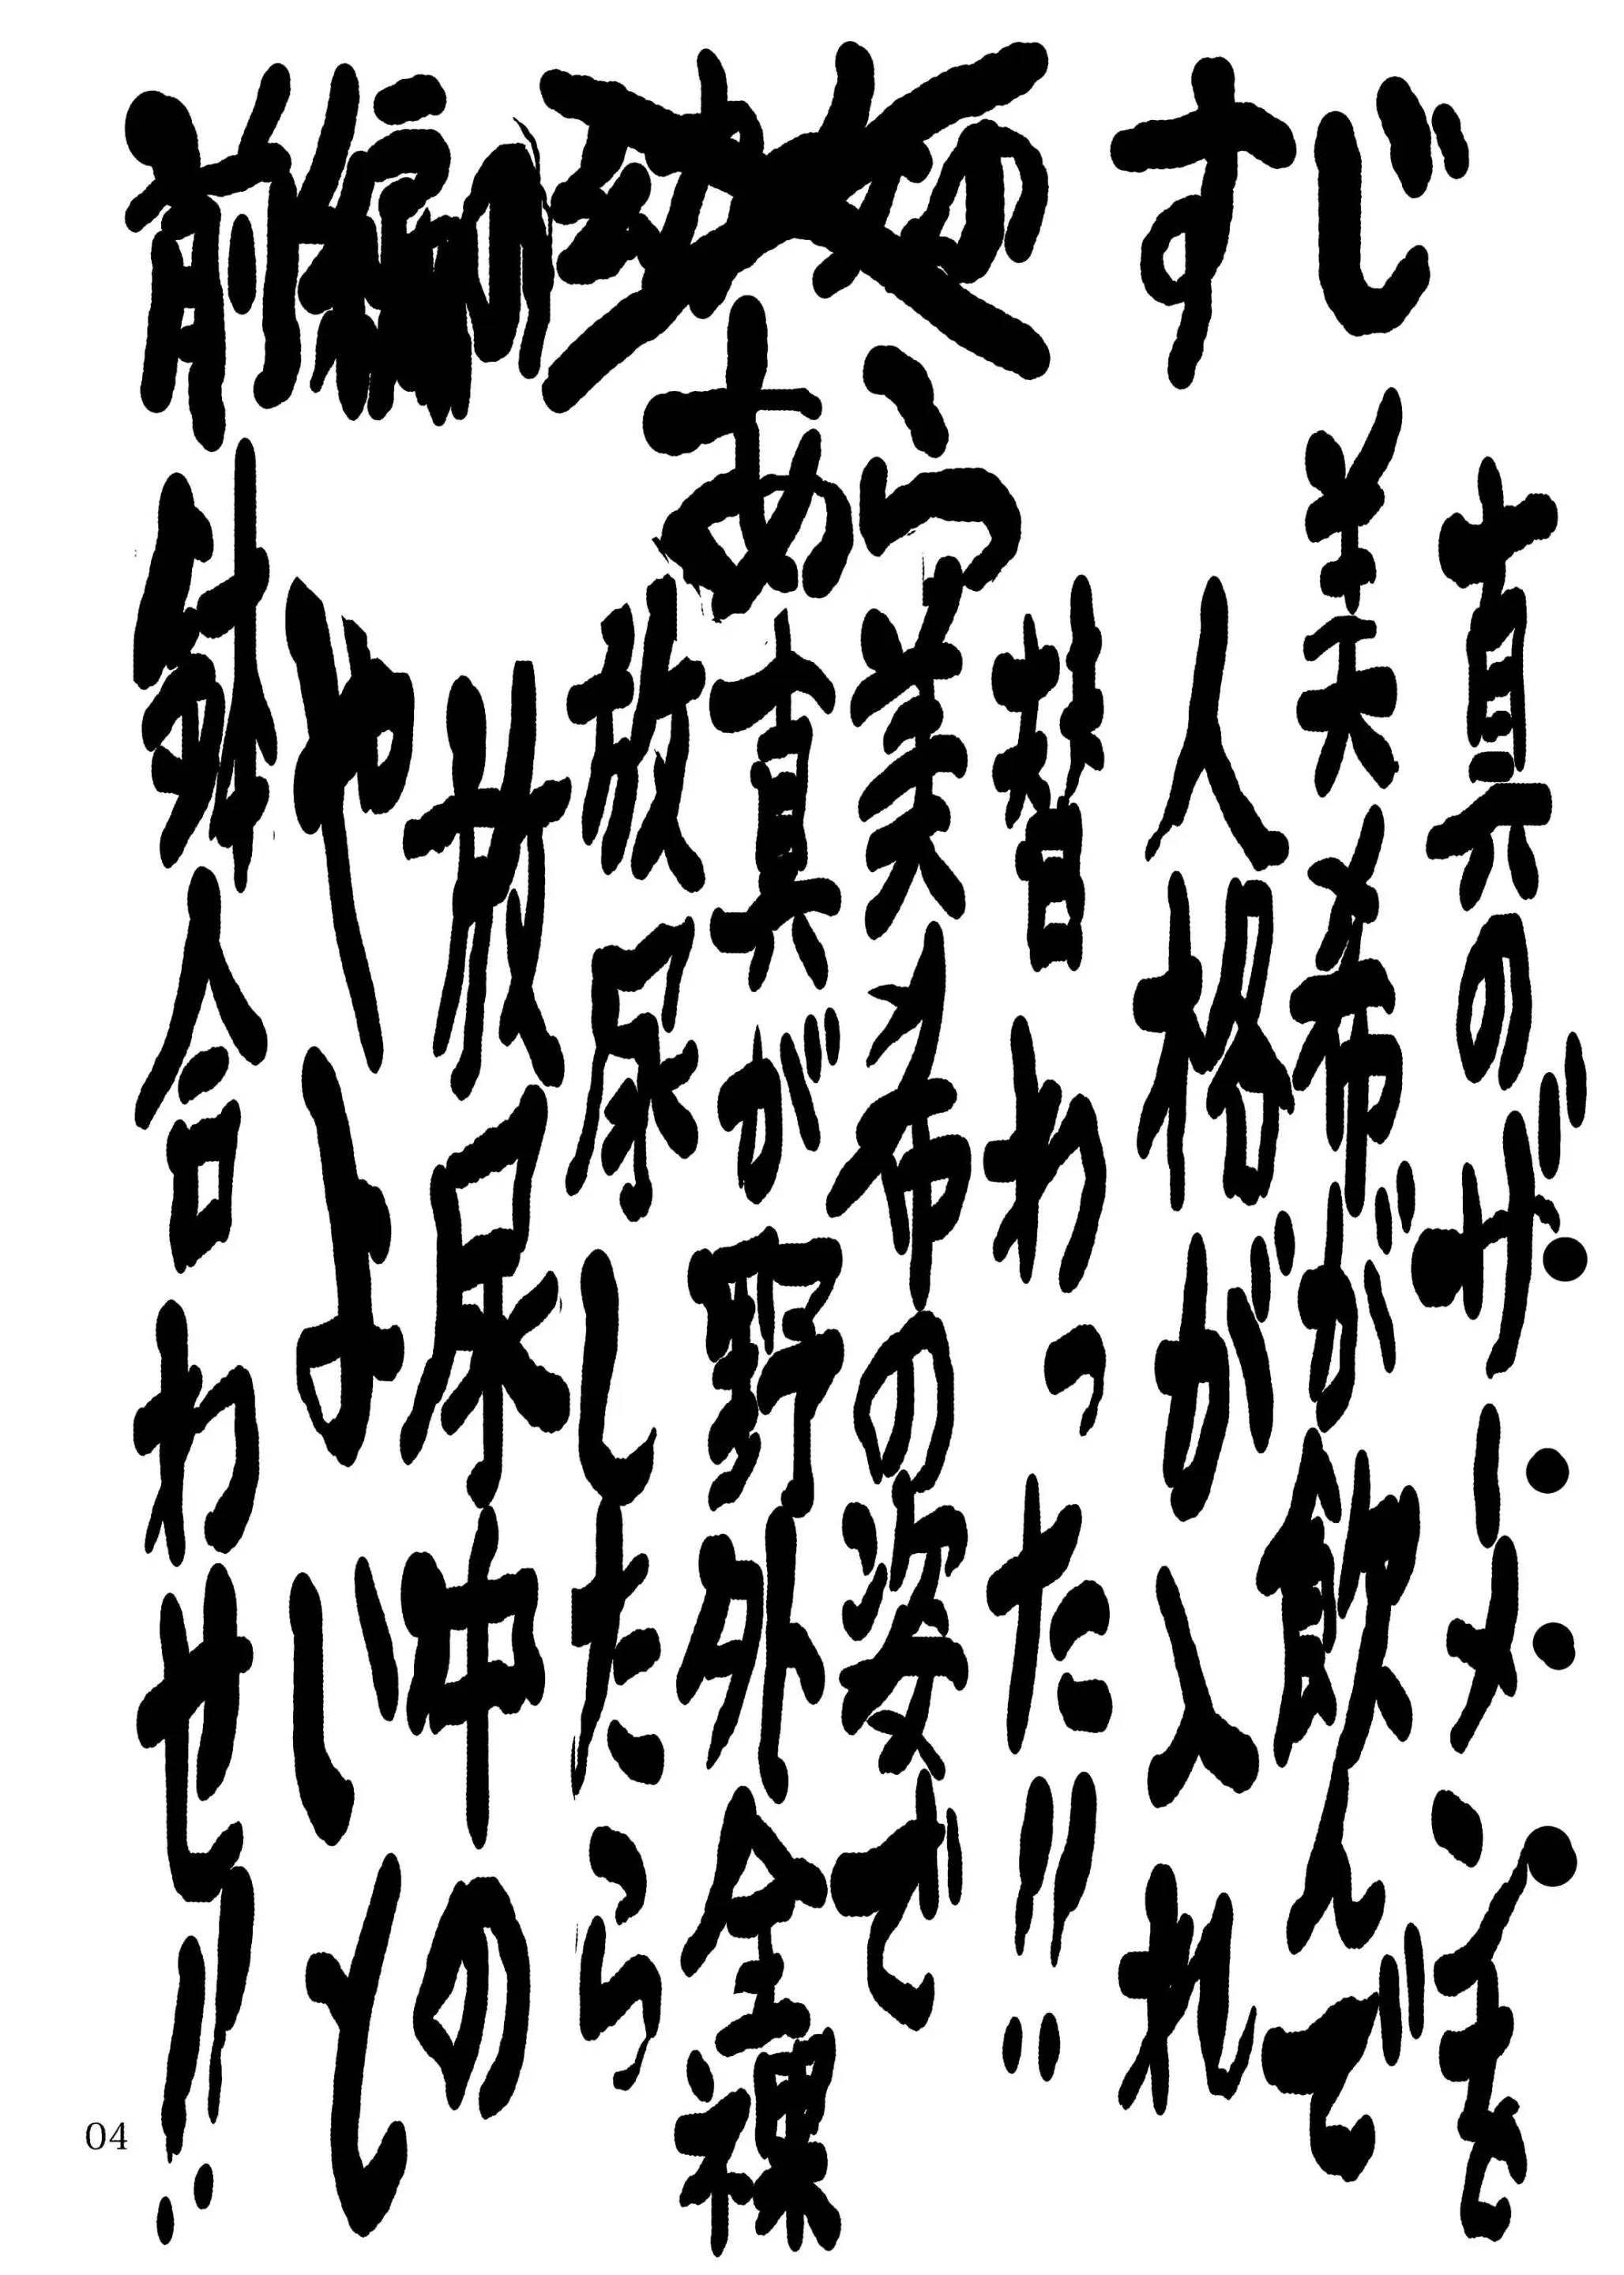 前編の
あらすじ
真のザーメンを
美希が飲んで
人格が入れ
替わった!!
美希の姿で
真が野外全裸
放尿したら
放尿中の
やよいと
鉢合わせ!!
04